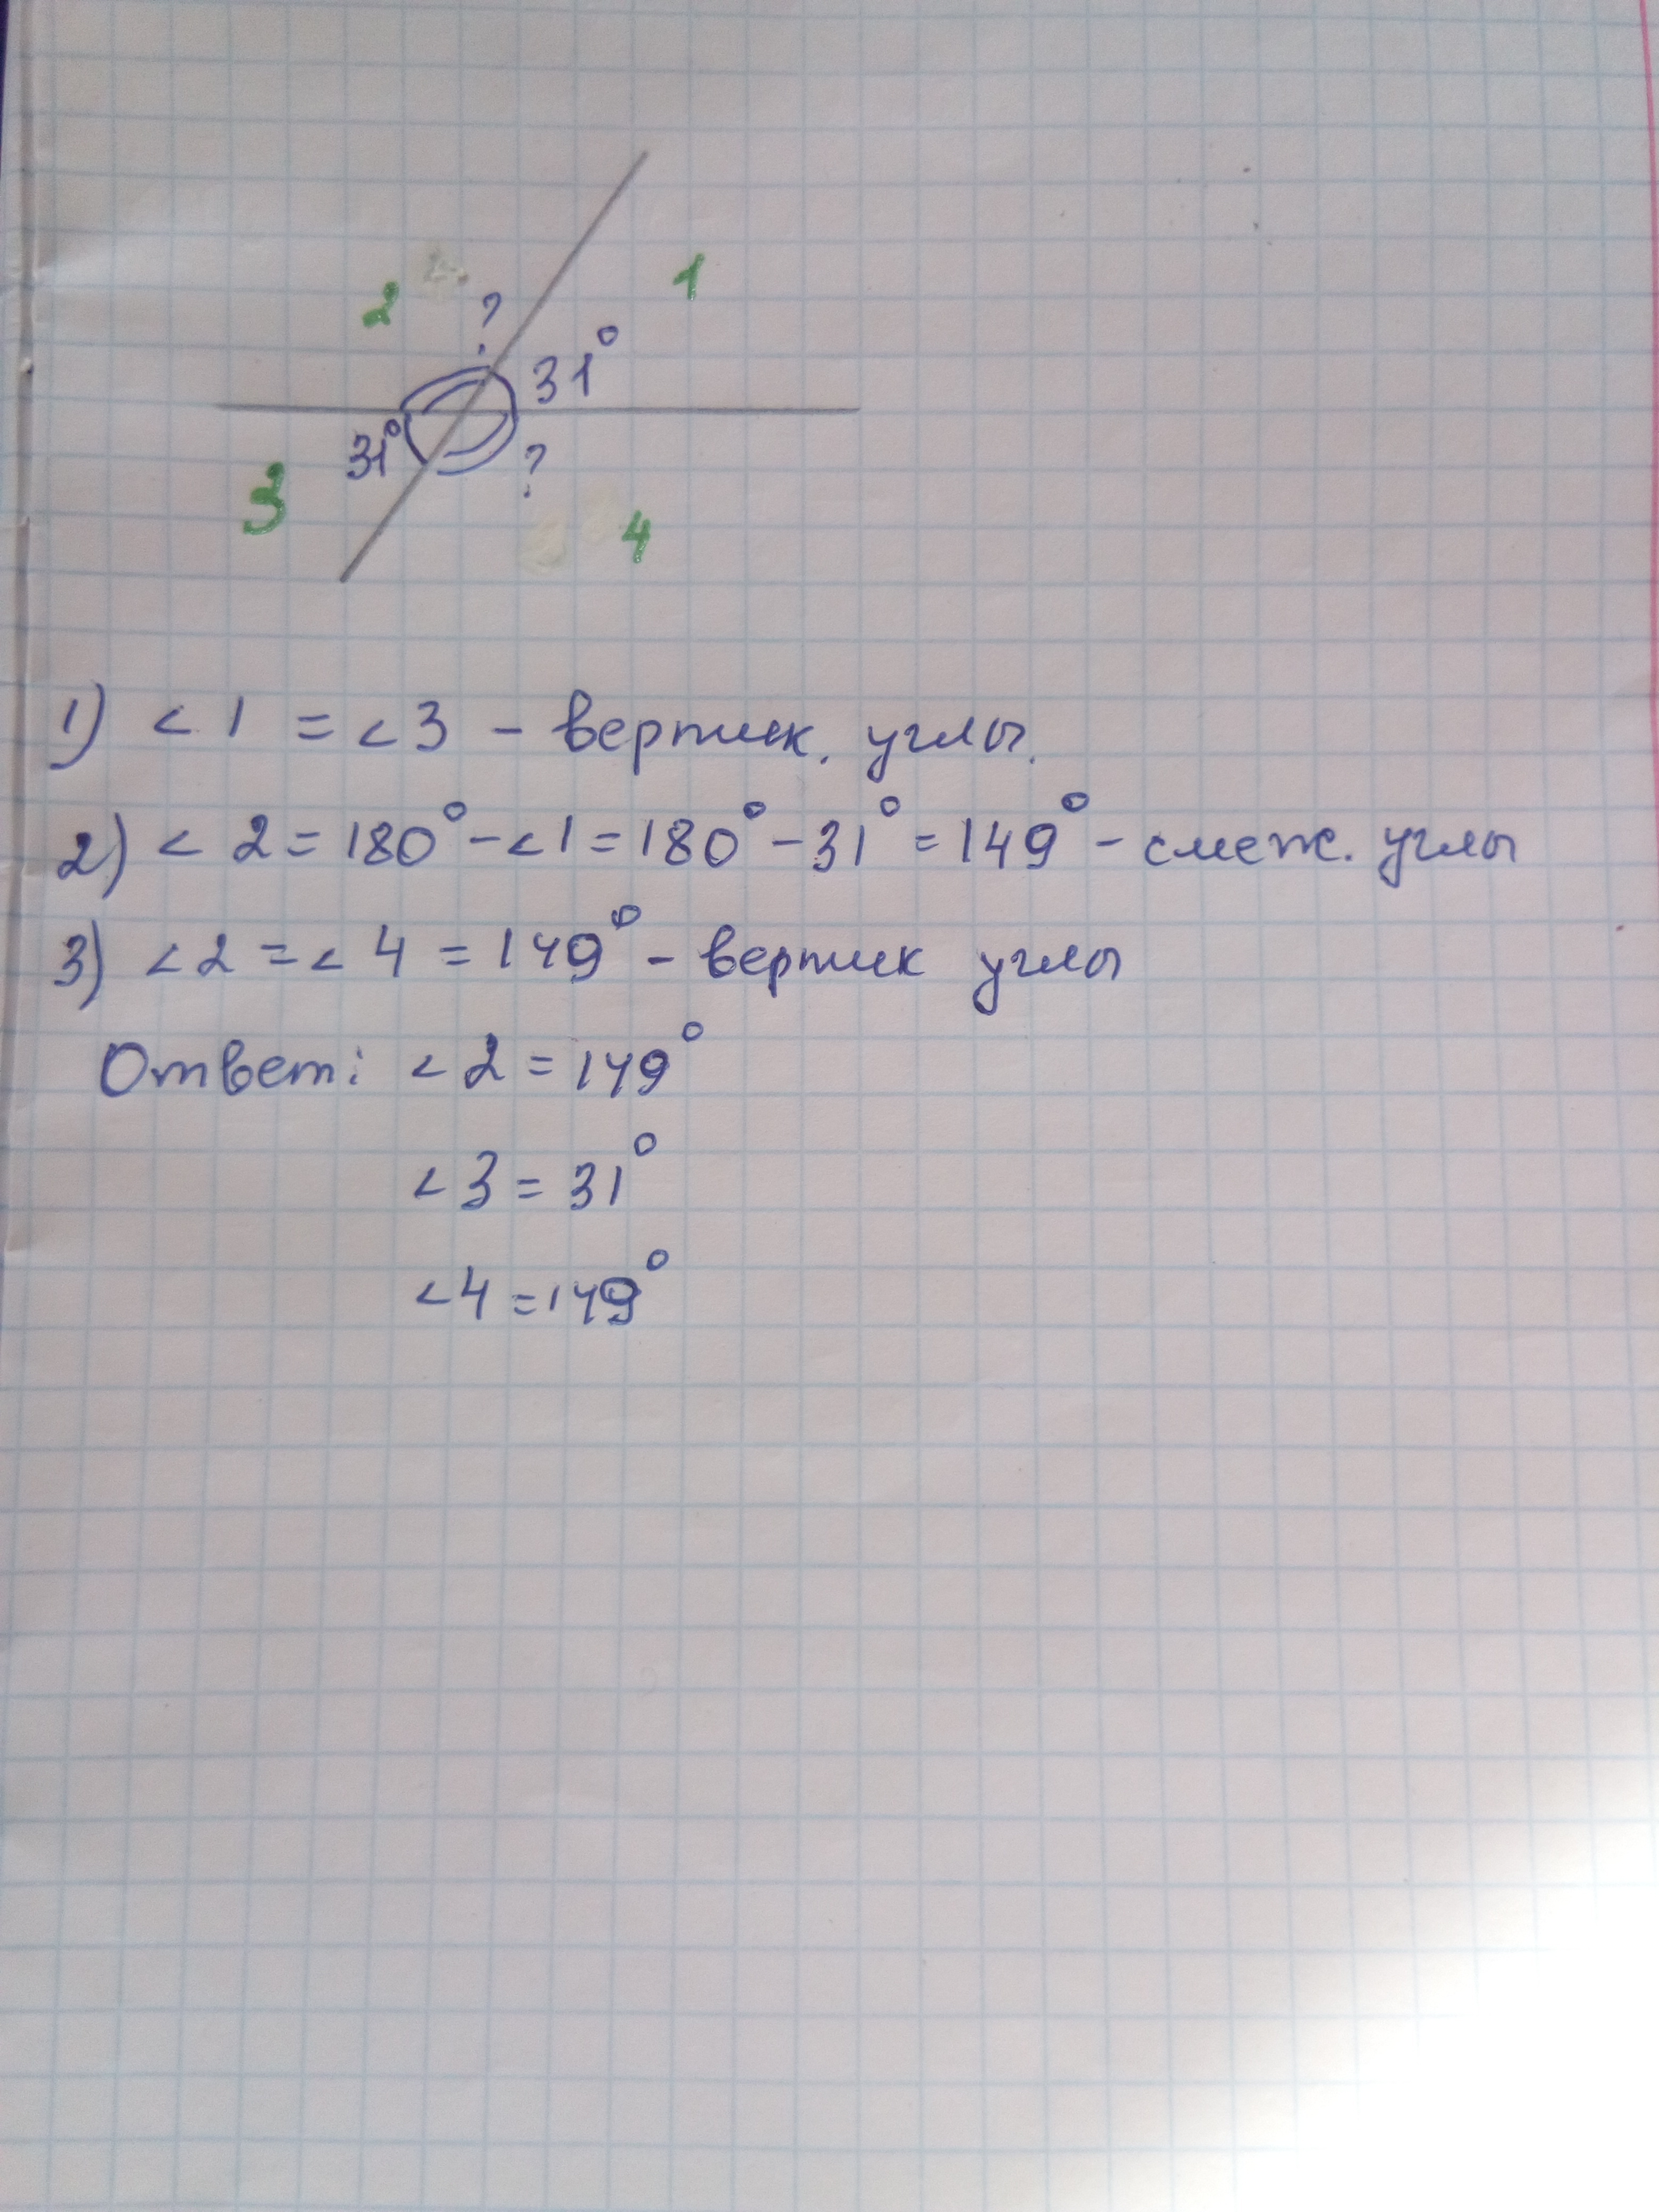 2 ? 1
31°
31° ?
3 4
1) < 1 = < 3 - вертик. углы.
2) < 2 = 180° - < 1 = 180° - 31° = 149° - смеж. углы
3) < 2 = < 4 = 149° - вертик углы
Ответ: < 2 = 149°
< 3 = 31°
< 4 = 149°